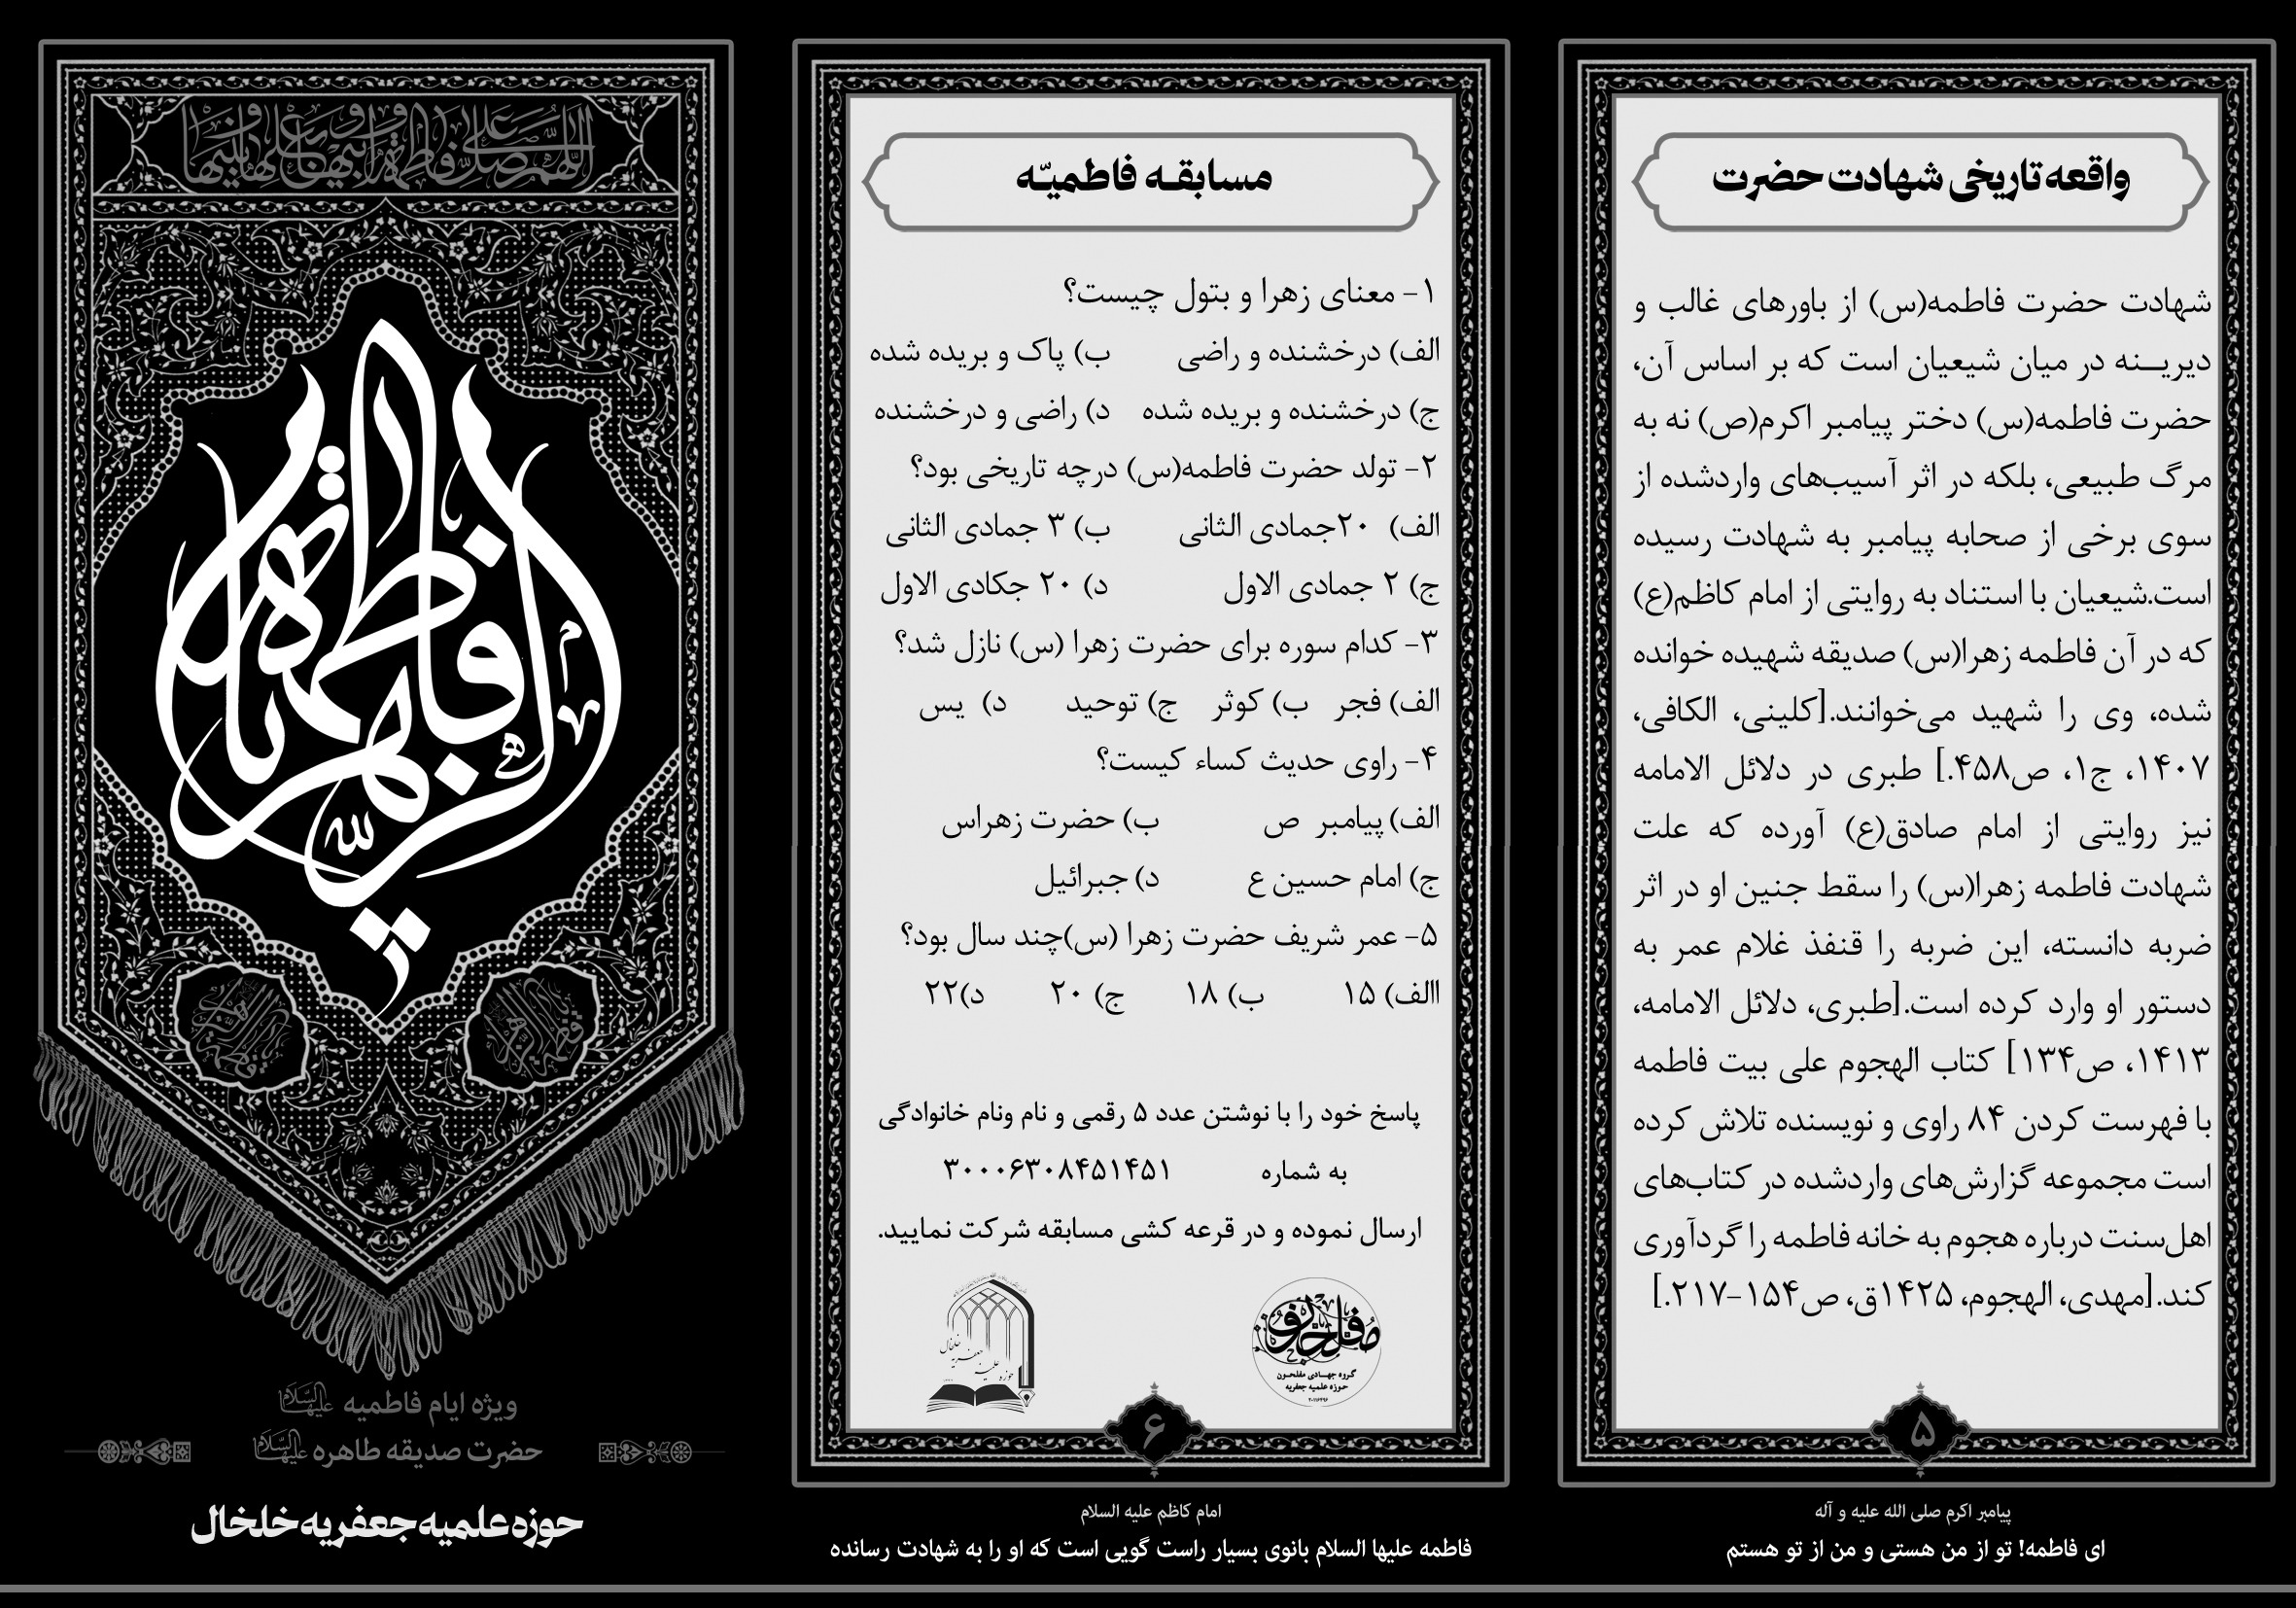 واقعه تاریخی شهادت حضرت
شهادت حضرت فاطمه(س) از باورهای غالب و
دیرینه در میان شیعیان است که بر اساس آن،
حضرت فاطمه(س) دختر پیامبر اکرم(ص) نه به
مرگ طبیعی، بلکه در اثر آسیب‌های واردشده از
سوی برخی از صحابه پیامبر به شهادت رسیده
است.شیعیان با استناد به روایتی از امام کاظم(ع)
که در آن فاطمه زهرا(س) صدیقه شهیده خوانده
شده، وی را شهید می‌خوانند.[کلینی، الکافی،
۱۴۰۷، ج۱، ص۴۵۸.] طبری در دلائل الامامه
نیز روایتی از امام صادق(ع) آورده که علت
شهادت فاطمه زهرا(س) را سقط جنین او در اثر
ضربه دانسته، این ضربه را قنفذ غلام عمر به
دستور او وارد کرده است.[طبری، دلائل الامامه،
۱۴۱۳، ص۱۳۴] کتاب الهجوم علی بیت فاطمه
با فهرست کردن ۸۴ راوی و نویسنده تلاش کرده
است مجموعه گزارش‌های واردشده در کتاب‌های
اهل‌سنت درباره هجوم به خانه فاطمه را گردآوری
کند.[مهدی، الهجوم، ۱۴۲۵ق، ص۱۵۴-۲۱۷.]
۵
پیامبر اکرم صلی الله علیه و آله
ای فاطمه! تو از من هستی و من از تو هستم
مسابقه فاطمیّه
۱- معنای زهرا و بتول چیست؟
الف) درخشنده و راضی ب) پاک و بریده شده
ج) درخشنده و بریده شده د) راضی و درخشنده
۲- تولد حضرت فاطمه(س) درچه تاریخی بود؟
الف) ۲۰جمادی الثانی ب) ۳ جمادی الثانی
ج) ۲ جمادی الاول د) ۲۰ جکادی الاول
۳- کدام سوره برای حضرت زهرا (س) نازل شد؟
الف) فجر ب) کوثر ج) توحید د) یس
۴- راوی حدیث کساء کیست؟
الف) پیامبر ص ب) حضرت زهراس
ج) امام حسین ع د) جبرائیل
۵- عمر شریف حضرت زهرا (س)چند سال بود؟
االف) ۱۵ ب) ۱۸ ج) ۲۰ د)۲۲
پاسخ خود را با نوشتن عدد ۵ رقمی و نام ونام خانوادگی
به شماره ۳۰۰۰۶۳۰۸۴۵۱۴۵۱
ارسال نموده و در قرعه کشی مسابقه شرکت نمایید.
گروه جهادی مفلحون
حوزه علمیه جعفریه
حوزه علمیه جعفریه خلخال
۶
امام کاظم علیه السلام
فاطمه علیها السلام بانوی بسیار راست گویی است که او را به شهادت رسانده
اللهم صل علی فاطمة و ابیها و بعلها و بنیها
یا فاطمة الزهرا
ویژه ایام فاطمیه علیها السلام
حضرت صدیقه طاهره علیها السلام
حوزه علمیه جعفریه خلخال